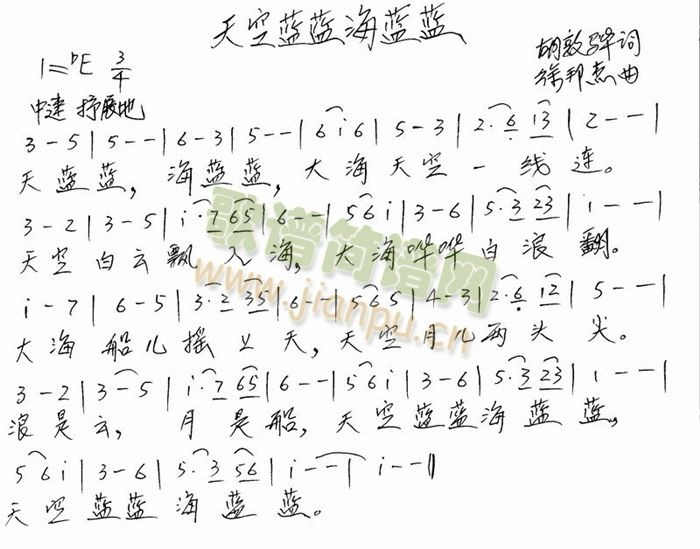 天空蓝蓝海蓝蓝
1=ᵇE 3/4
胡敦骅词
徐邦杰曲
中速 抒展地
3 - 5 | 5 - - | 6 - 3 | 5 - - | 6 i 6 | 5 - 3 | 2· 6 13 | 2 - - |
天蓝蓝，海蓝蓝，大海天空一线连。
3 - 2 | 3 - 5 | i · 7 65 | 6 - - | 5 6 i | 3 - 6 | 5 · 3 23 | i - - |
天空白云飘入海，大海哗哗白浪翻。
i - 7 | 6 - 5 | 3 · 2 35 | 6 - - | 5 6 5 | 4 - 3 | 2 · 6 12 | 5 - - |
大海船儿摇上天，天空月儿两头尖。
3 - 2 | 3 - 5 | i · 7 65 | 6 - - | 5 6 i | 3 - 6 | 5 · 3 23 | 1 - - |
浪是云，月是船，天空蓝蓝海蓝蓝，
5 6 i | 3 - 6 | 5 · 3 56 | i - - | i - - ‖
天空蓝蓝海蓝蓝。
歌谱简谱网
www.jianpu.cn